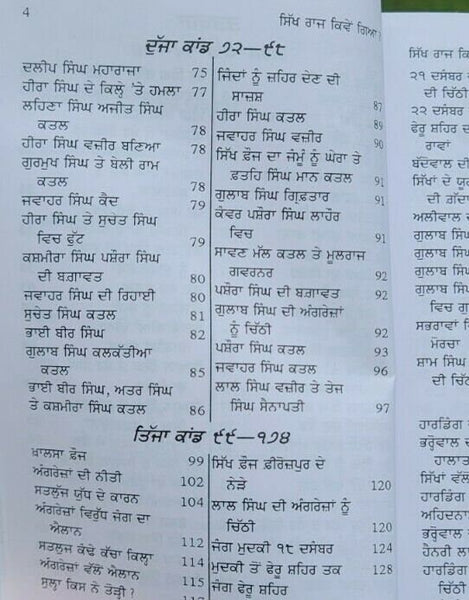 4
ਸਿੱਖ ਰਾਜ ਕਿਵੇਂ ਗਿਆ ?
ਦੂੱਜਾ ਕਾਂਡ ੭੨—੯੮
ਦਲੀਪ ਸਿੰਘ ਮਹਾਰਾਜਾ 75
ਹੀਰਾ ਸਿੰਘ ਦੇ ਕਿਲ੍ਹੇ 'ਤੇ ਹਮਲਾ 77
ਲਹਿਣਾ ਸਿੰਘ ਅਜੀਤ ਸਿੰਘ
ਕਤਲ 78
ਹੀਰਾ ਸਿੰਘ ਵਜ਼ੀਰ ਬਣਿਆ 78
ਗੁਰਮੁਖ ਸਿੰਘ ਤੇ ਬੇਲੀ ਰਾਮ
ਕਤਲ 78
ਜਵਾਹਰ ਸਿੰਘ ਕੈਦ 79
ਹੀਰਾ ਸਿੰਘ ਤੇ ਸੁਚੇਤ ਸਿੰਘ
ਵਿਚ ਫੁੱਟ 79
ਕਸ਼ਮੀਰਾ ਸਿੰਘ ਪਸ਼ੌਰਾ ਸਿੰਘ
ਦੀ ਬਗ਼ਾਵਤ 80
ਜਵਾਹਰ ਸਿੰਘ ਦੀ ਰਿਹਾਈ 80
ਸੁਚੇਤ ਸਿੰਘ ਕਤਲ 81
ਭਾਈ ਬੀਰ ਸਿੰਘ 82
ਗੁਲਾਬ ਸਿੰਘ ਕਲਕੱਤੀਆ
ਕਤਲ 85
ਭਾਈ ਬੀਰ ਸਿੰਘ, ਅਤਰ ਸਿੰਘ
ਤੇ ਕਸ਼ਮੀਰਾ ਸਿੰਘ ਕਤਲ 86
ਜਿੰਦਾਂ ਨੂੰ ਜ਼ਹਿਰ ਦੇਣ ਦੀ
ਸਾਜ਼ਸ਼ 87
ਹੀਰਾ ਸਿੰਘ ਕਤਲ 89
ਜਵਾਹਰ ਸਿੰਘ ਵਜ਼ੀਰ 90
ਸਿੱਖ ਫ਼ੌਜ ਦਾ ਜੰਮੂੰ ਨੂੰ ਘੇਰਾ ਤੇ
ਫ਼ਤਹਿ ਸਿੰਘ ਮਾਨ ਕਤਲ 91
ਗੁਲਾਬ ਸਿੰਘ ਗ੍ਰਿਫ਼ਤਾਰ 91
ਕੰਵਰ ਪਸ਼ੌਰਾ ਸਿੰਘ ਲਾਹੌਰ
ਵਿਚ 91
ਸਾਵਣ ਮੱਲ ਕਤਲ ਤੇ ਮੂਲਰਾਜ
ਗਵਰਨਰ 92
ਪਸ਼ੌਰਾ ਸਿੰਘ ਦੀ ਬਗ਼ਾਵਤ 92
ਗੁਲਾਬ ਸਿੰਘ ਦੀ ਅੰਗਰੇਜ਼ਾਂ
ਨੂੰ ਚਿੱਠੀ 92
ਪਸ਼ੌਰਾ ਸਿੰਘ ਕਤਲ 93
ਜਵਾਹਰ ਸਿੰਘ ਕਤਲ 96
ਲਾਲ ਸਿੰਘ ਵਜ਼ੀਰ ਤੇ ਤੇਜ
ਸਿੰਘ ਸੈਨਾਪਤੀ 97
ਤਿੱਜਾ ਕਾਂਡ ੯੯—੧੭੪
ਖ਼ਾਲਸਾ ਫ਼ੌਜ 99
ਅੰਗਰੇਜ਼ਾਂ ਦੀ ਨੀਤੀ 102
ਸਤਲੁਜ ਯੁੱਧ ਦੇ ਕਾਰਨ 104
ਅੰਗਰੇਜ਼ਾਂ ਵਿਰੁੱਧ ਜੰਗ ਦਾ
ਐਲਾਨ 112
ਸਤਲੁਜ ਕੰਢੇ ਕੱਚਾ ਕਿਲ੍ਹਾ 114
ਅੰਗਰੇਜ਼ਾਂ ਵੱਲੋਂ ਐਲਾਨ 114
ਸੁਲ੍ਹਾ ਕਿਸ ਨੇ ਤੋੜੀ ? 115
ਸਿੱਖ ਫ਼ੌਜ ਫ਼ੀਰੋਜ਼ਪੁਰ ਦੇ
ਨੇੜੇ 120
ਲਾਲ ਸਿੰਘ ਦੀ ਅੰਗਰੇਜ਼ਾਂ ਨੂੰ
ਚਿੱਠੀ 120
ਜੰਗ ਮੁਦਕੀ ੧੮ ਦਸੰਬਰ 124
ਮੁਦਕੀ ਤੋਂ ਫੇਰੂ ਸ਼ਹਿਰ ਤਕ 128
ਜੰਗ ਫੇਰੂ ਸ਼ਹਿਰ
ਸਿੱਖ ਰਾਜ ਕਿ
੨੧ ਦਸੰਬਰ
ਦੀ ਚਿੱਠੀ
੨੨ ਦਸੰਬਰ
ਫੇਰੂ ਸ਼ਹਿਰ ਦ
ਰਾਵਾਂ
ਬੱਦੋਵਾਲ ਦੀ
ਸਿੱਖਾਂ ਦੇ ਯੂ
ਦੀ ਗੱਦਾ
ਅਲੀਵਾਲ
ਗੁਲਾਬ ਸਿੰਘ
ਗੁਲਾਬ ਸਿੰਘ
ਗੁਲਾਬ ਸਿੰਘ
ਗੁਲਾਬ ਸਿੰਘ
ਵਿਚ ਗੁ
ਸਭਰਾਵਾਂ
ਮੋਰਚਾ
ਸ਼ਾਮ ਸਿੰਘ
ਦੀ ਚਿੱਠ
ਹਾਰਡਿੰਗ
ਭਰੋਵਾਲ ਦ
ਹਾਲਾਤ
ਸਿੱਖਾਂ ਵੱਲੋਂ
ਹਾਰਡਿੰਗ
ਅਹਿਦਨਾ
ਭਰੋਵਾਲ
ਹੈਨਰੀ ਲਾ
ਹਾਰਡਿੰਗ
ਚਿੱਠੀ